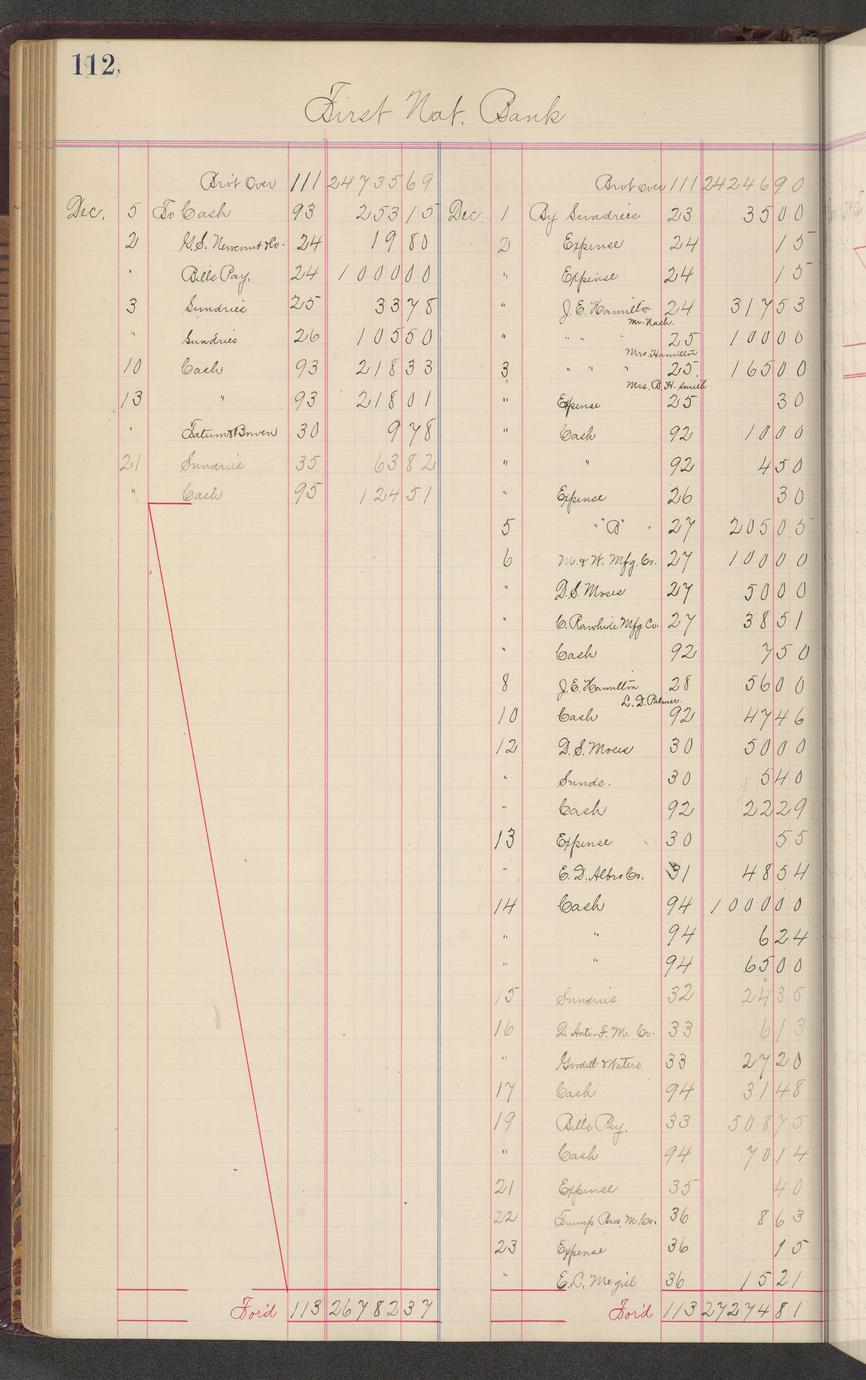 112,
First Nat. Bank
Bro't Over 111 24735 69
Dec. 5 To Cash 93 253 15
2 G.S. Newcomb & Co. 24 19 80
" Bills Pay. 24 1000 00
3 Sundries 25 33 78
" Sundries 26 105 50
10 Cash 93 218 33
13 " 93 218 01
" Tatum & Bowen 30 9 78
21 Sundries 35 63 82
" Cash 95 124 51
For'd 113 26782 37
Bro't over 111 24246 90
Dec. 1 By Sundries 23 35 00
2 Expense 24 15
" Expense 24 15
" J.E. Hamilton 24 317 53
Mr. Nash.
" " " " 25 100 00
Mrs. Hamilton
3 " " " 25 165 00
Mrs. B.H. Smith
" Expense 25 30
" Cash 92 10 00
" " 92 4 50
" Expense 26 30
5 " "B" " 27 205 05
6 M. & W. Mfg. Co. 27 100 00
" D.S. Moses 27 50 00
" C. Rawhide Mfg Co. 27 38 51
" Cash 92 7 50
8 J.E. Hamilton 28 56 00
L.D. Palmer.
10 Cash 92 47 46
12 D.S. Moses 30 50 00
" Sunds. 30 5 40
" Cash 92 22 29
13 Expense 30 55
" E.D. Albro Co. 31 48 54
14 Cash 94 1000 00
" " 94 6 24
" " 94 65 00
15 Sundries 32 24 35
16 D. M. Co. 33 6 13
" Goodell & Waters 33 27 20
17 Cash 94 31 48
19 Bills Pay. 33 508 75
" Cash 94 70 14
21 Expense 35 40
22 Trump Bros. M. Co. 36 8 63
23 Expense 36 15
" E.L. Megill 36 15 21
For'd 113 27274 81